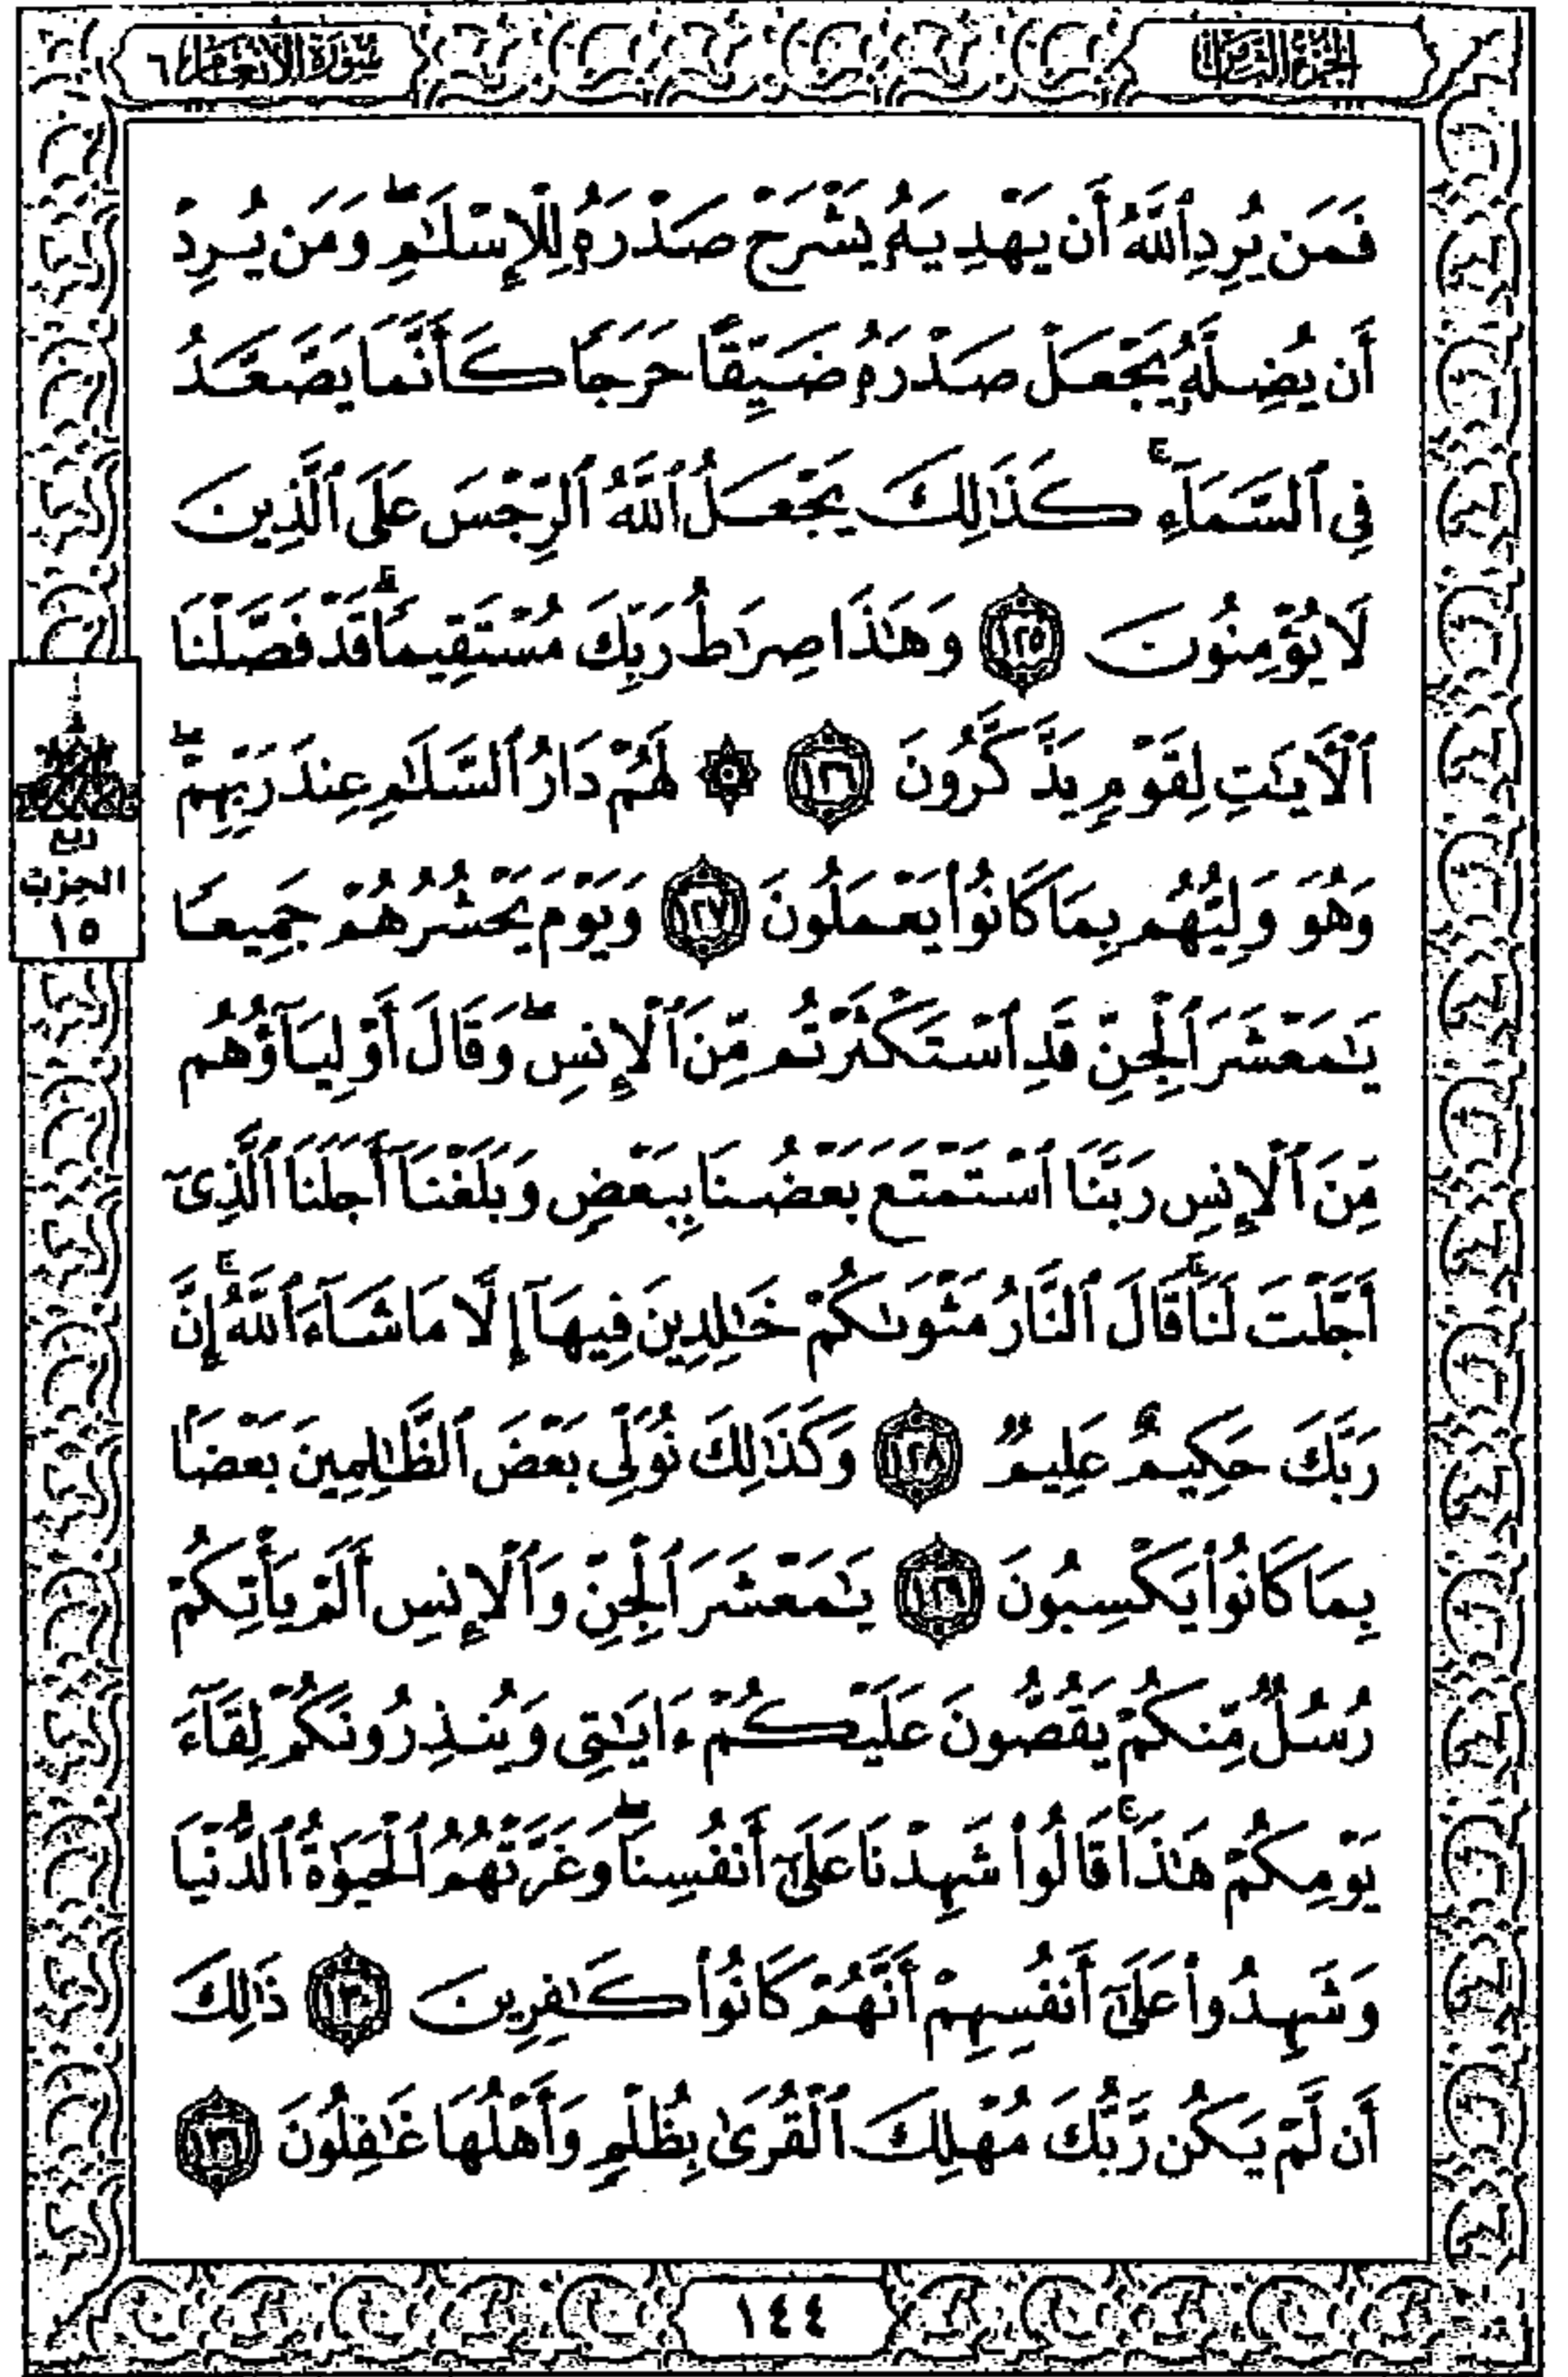 الجزء الثامن
سورة الأنعام ٦
فَمَن يُرِدِ ٱللَّهُ أَن يَهْدِيَهُۥ يَشْرَحْ صَدْرَهُۥ لِلْإِسْلَٰمِ ۖ وَمَن يُرِدْ
أَن يُضِلَّهُۥ يَجْعَلْ صَدْرَهُۥ ضَيِّقًا حَرَجًا كَأَنَّمَا يَصَّعَّدُ
فِى ٱلسَّمَآءِ ۚ كَذَٰلِكَ يَجْعَلُ ٱللَّهُ ٱلرِّجْسَ عَلَى ٱلَّذِينَ
لَا يُؤْمِنُونَ ١٢٥ وَهَٰذَا صِرَٰطُ رَبِّكَ مُسْتَقِيمًا ۗ قَدْ فَصَّلْنَا
ٱلْـَٔايَٰتِ لِقَوْمٍ يَذَّكَّرُونَ ١٢٦ ۞ لَهُمْ دَارُ ٱلسَّلَٰمِ عِندَ رَبِّهِمْ ۖ
وَهُوَ وَلِيُّهُم بِمَا كَانُوا۟ يَعْمَلُونَ ١٢٧ وَيَوْمَ يَحْشُرُهُمْ جَمِيعًا
يَٰمَعْشَرَ ٱلْجِنِّ قَدِ ٱسْتَكْثَرْتُم مِّنَ ٱلْإِنسِ ۖ وَقَالَ أَوْلِيَآؤُهُم
مِّنَ ٱلْإِنسِ رَبَّنَا ٱسْتَمْتَعَ بَعْضُنَا بِبَعْضٍ وَبَلَغْنَآ أَجَلَنَا ٱلَّذِىٓ
أَجَّلْتَ لَنَا ۚ قَالَ ٱلنَّارُ مَثْوَىٰكُمْ خَٰلِدِينَ فِيهَآ إِلَّا مَا شَآءَ ٱللَّهُ ۚ إِنَّ
رَبَّكَ حَكِيمٌ عَلِيمٌ ١٢٨ وَكَذَٰلِكَ نُوَلِّى بَعْضَ ٱلظَّٰلِمِينَ بَعْضًۢا
بِمَا كَانُوا۟ يَكْسِبُونَ ١٢٩ يَٰمَعْشَرَ ٱلْجِنِّ وَٱلْإِنسِ أَلَمْ يَأْتِكُمْ
رُسُلٌ مِّنكُمْ يَقُصُّونَ عَلَيْكُمْ ءَايَٰتِى وَيُنذِرُونَكُمْ لِقَآءَ
يَوْمِكُمْ هَٰذَا ۚ قَالُوا۟ شَهِدْنَا عَلَىٰٓ أَنفُسِنَا ۖ وَغَرَّتْهُمُ ٱلْحَيَوٰةُ ٱلدُّنْيَا
وَشَهِدُوا۟ عَلَىٰٓ أَنفُسِهِمْ أَنَّهُمْ كَانُوا۟ كَٰفِرِينَ ١٣٠ ذَٰلِكَ
أَن لَّمْ يَكُن رَّبُّكَ مُهْلِكَ ٱلْقُرَىٰ بِظُلْمٍ وَأَهْلُهَا غَٰفِلُونَ ١٣١
ربع
الحزب
١٥
١٤٤